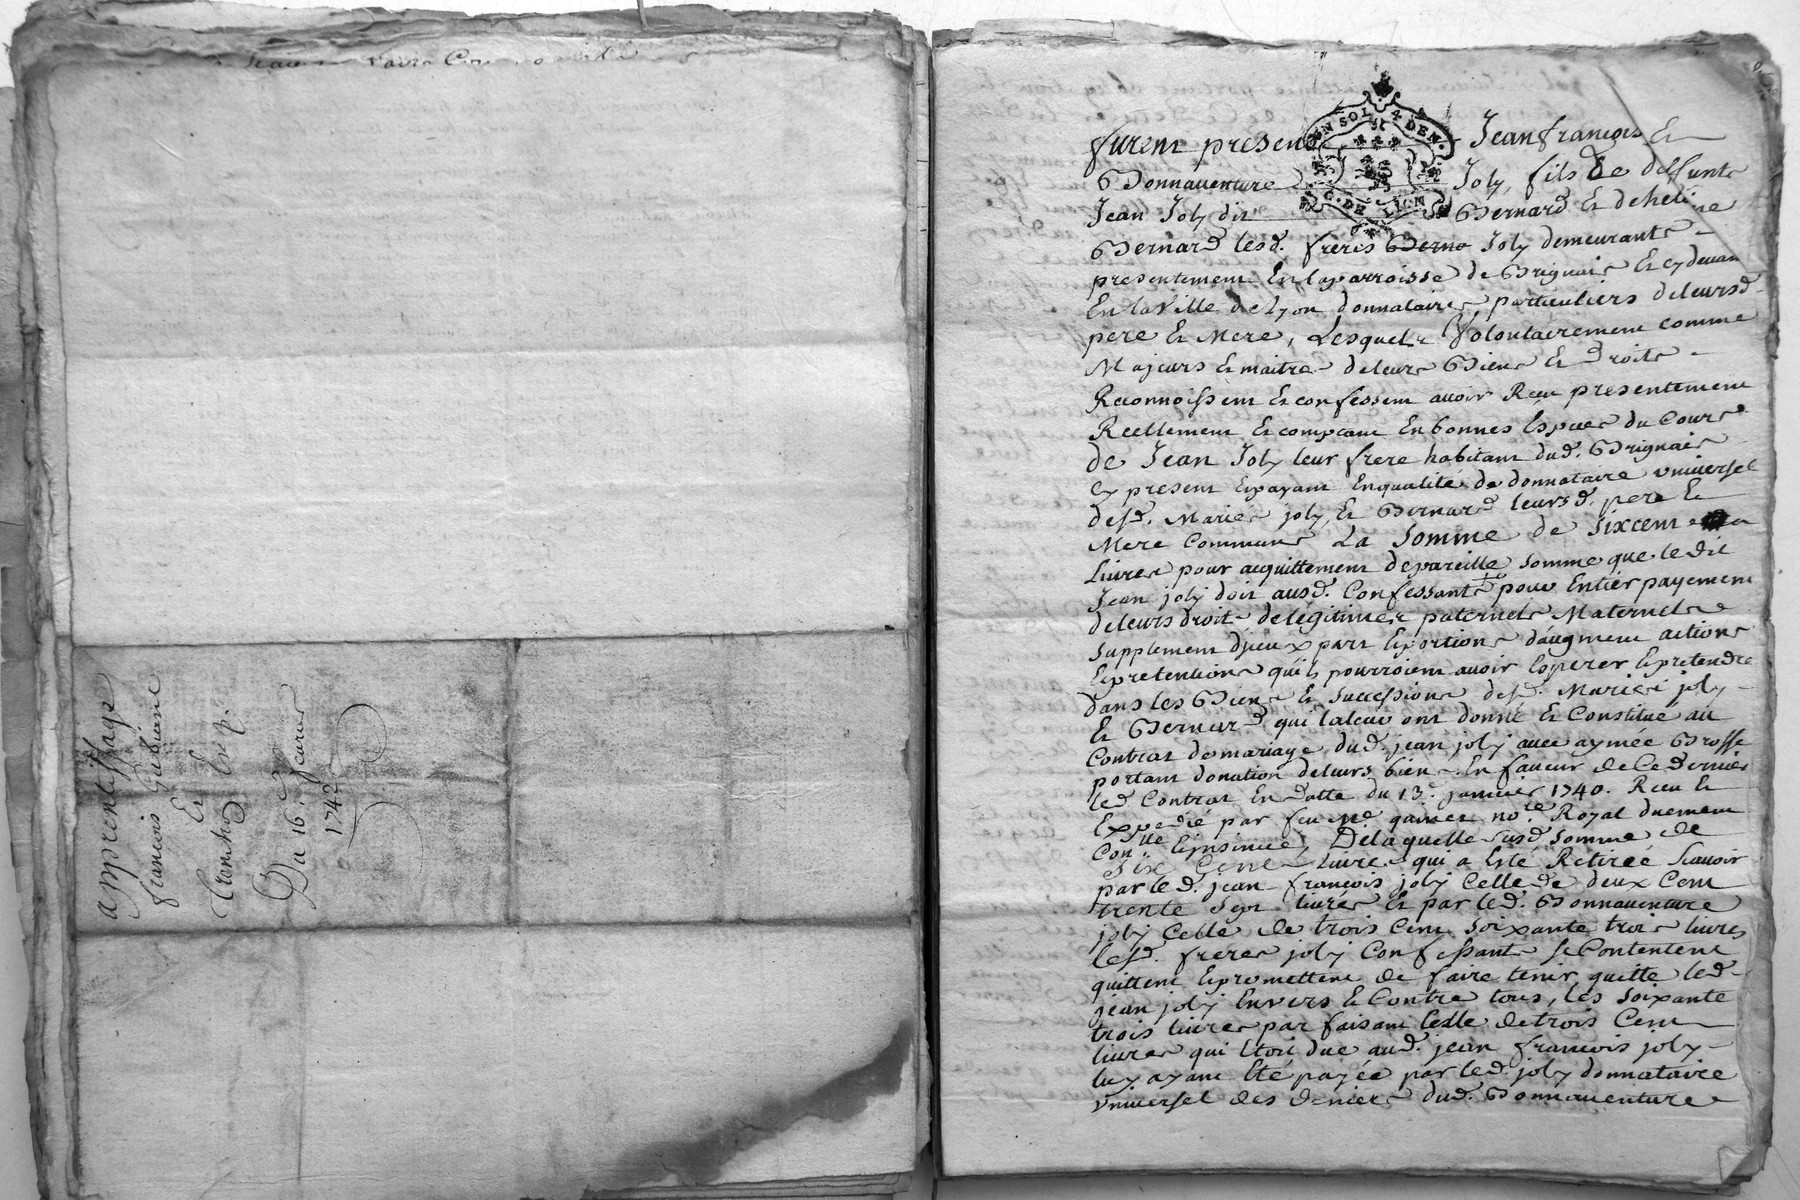 apprentissage
francois Gubian
Et
Du 16e. feurier
1742
UN SOL 4 DEN.
G. DE LION
furent presens Jean françois Et
Bonnauenture Joly, fils de deffunts
Jean Joly dit Bernard Et de heleine
Bernard lesd. freres Joly demeurants
presentement En la parroisse de Brignais Et cy deuant
En la Ville de Lyon donnataires particuliers de leursd.
pere Et Mere, Lesquels Volontairement comme
Majeurs Et maitres de leurs Biens Et Droits
Reconnoissent Et confessent auoir Receu presentement
Reellement Et comptant En bonnes Especes du Cours
de Jean Joly leur frere habitant dud. Brignais
Cy present Et payant En qualité de donnataire vniuersel
desd. Mariés joly, Et Bernard leursd. pere Et
Mere Communs La Somme de Sixcent
Liures pour acquittement de pareille Somme que ledit
Jean joly doit ausd. Confessants pour Entier payement
de leurs droits de legitimes paternels Maternels
Supplement d'jceux part Et portions d'augment actions
Et pretentions qu'ils pourroient auoir Esperer Et pretendre
dans les Biens Et Successions desd. Mariés joly
Et Bernard qui la leur ont donné Et Constitué au
Contrat de mariage dud. jean joly auec aymée Brosse
portant donation de leurs biens En faueur de Ce dernier
led. Contrat En datte du 13e. januier 1740. Receu Et
Expedié par feu Me. garnier no.re Royal duement
Con.llé Et jnsinué, De laquelle susd. Somme de
Six Cent Liures qui a Eté Retirée Scauoir
par led. jean françois joly Celle de deux Cent
trente Sept liures Et par led. Bonnauenture
joly Celle de trois Cent Soixante trois liures
lesd. freres joly Confessants se Contentent
quittent Et promettent de faire tenir quitte led.
jean joly Enuers Et Contre tous, les Soixante
trois liures parfaisant Celle de trois Cent
liures qui Etoit due aud. jean françois joly
luy ayant Eté payée par led. joly donnataire
vniuersel des deniers dud. Bonnauenture